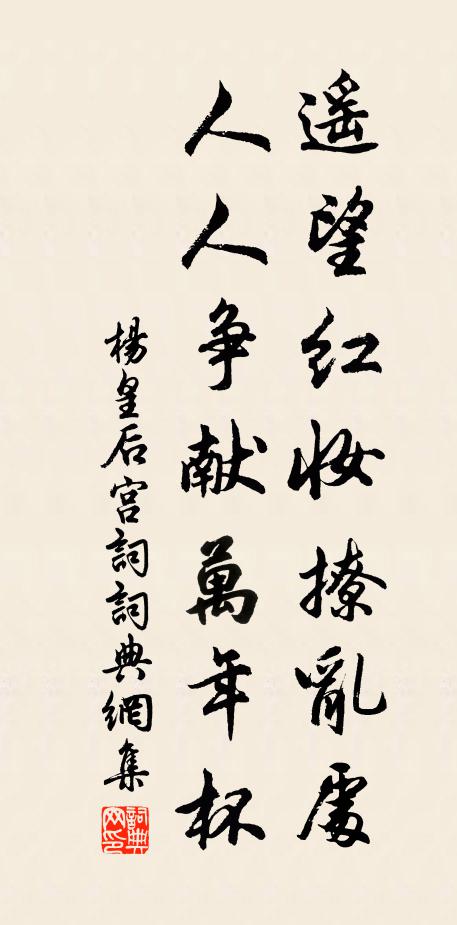 遥望红妆撩亂處
人人争献萬年杯
楊皇后宫詞詞典網集
詞典网印